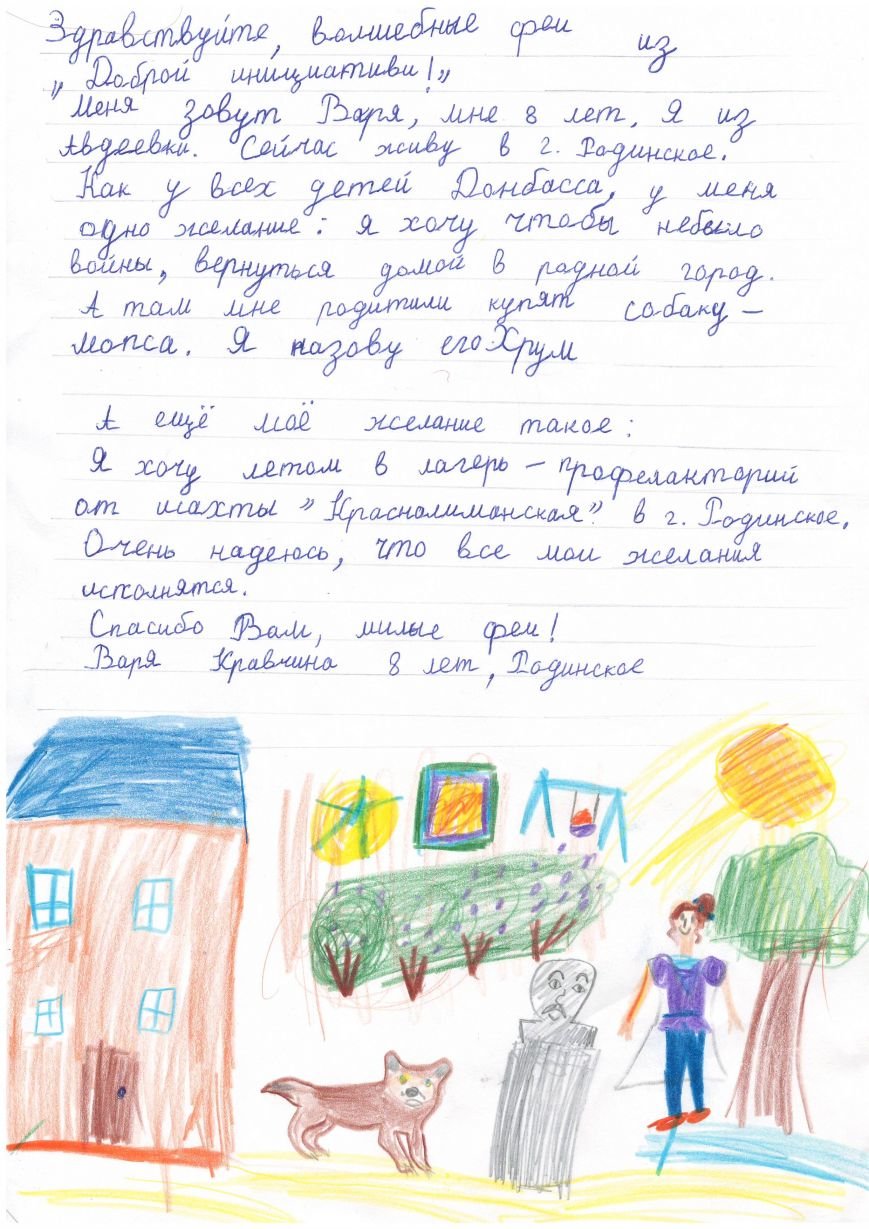 Здравствуйте, волшебные феи из
„Доброй инициативи!„
Меня зовут Варя, мне 8 лет, Я из
Авдеевки. Сейчас живу в г. Родинское.
Как у всех детей Донбасса, у меня
одно желание: я хочу чтобы небыло
войны, вернуться домой в родной город.
А там мне родители купят собаку –
мопса. Я назову его Хрум
А ещё моё желание такое:
Я хочу летом в лагерь – профелакторий
от шахты "Краснолиманская" в г. Родинское.
Очень надеюсь, что все мои желания
исполнятся.
Спасибо Вам, милые феи!
Варя Кравчина 8 лет, Родинское